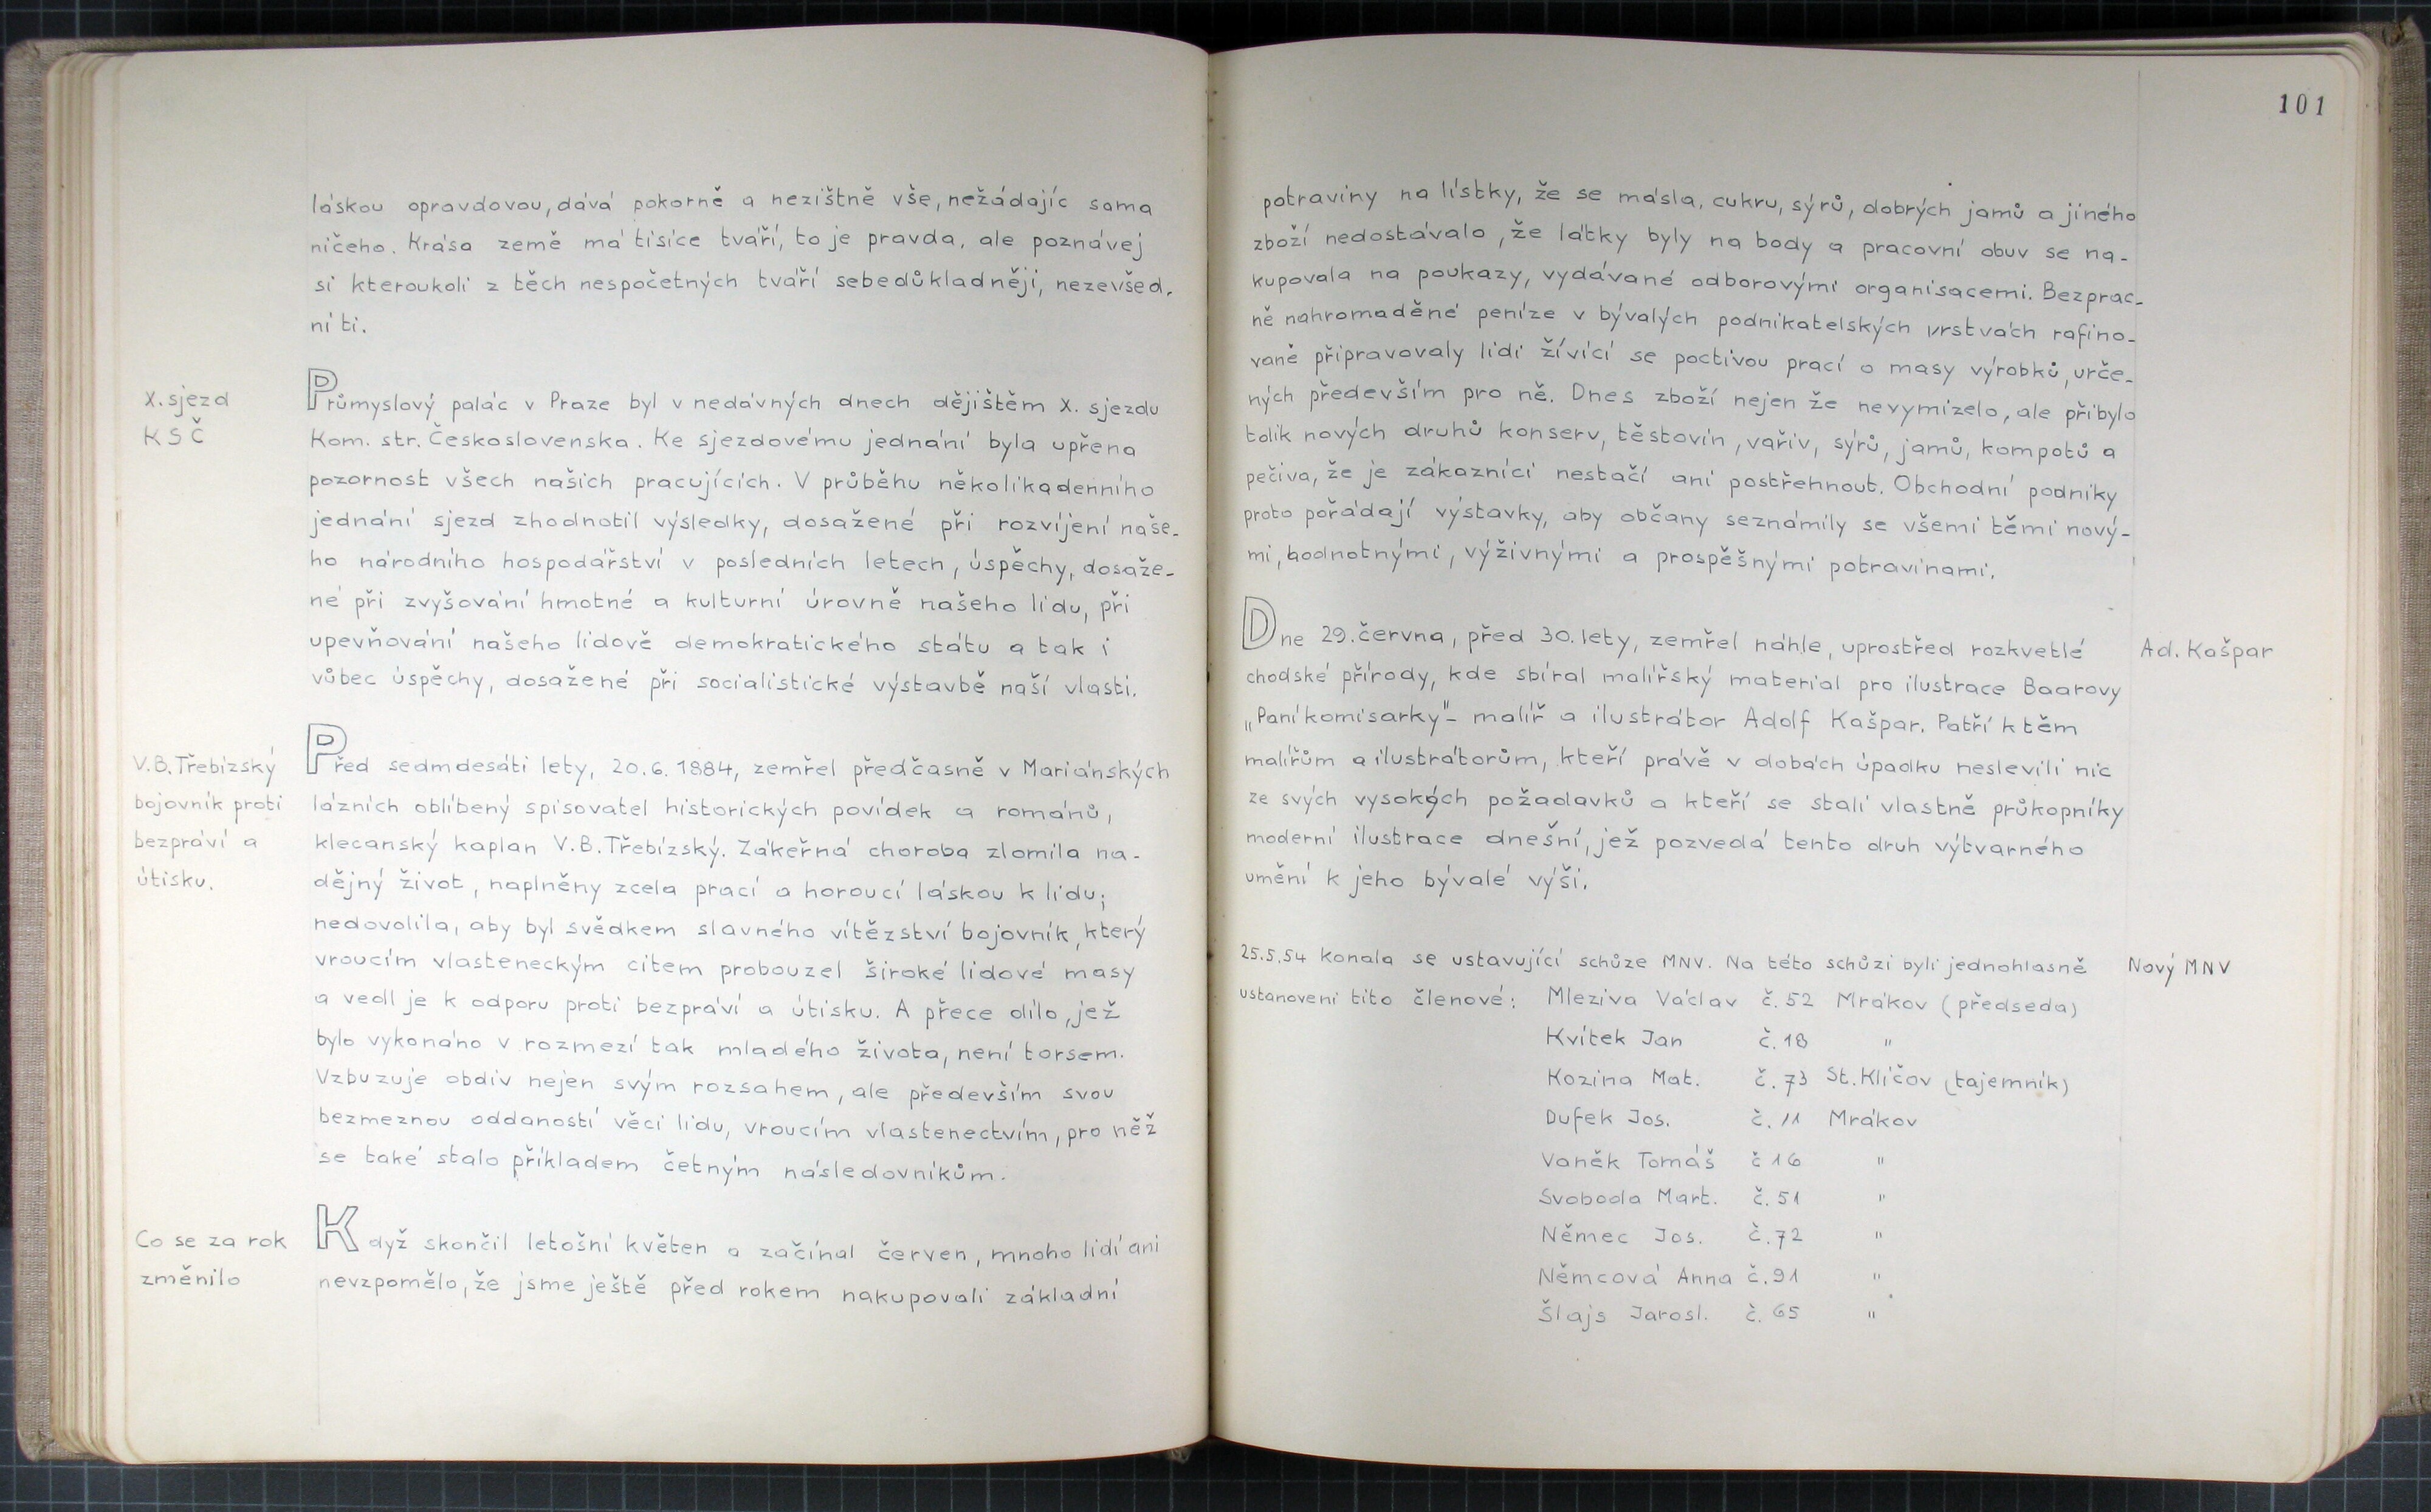 láskou opravdovou, dává pokorně a nezištně vše, nežádajíc sama
ničeho. Krása země má tisíce tváří, to je pravda, ale poznávej
si kteroukoli z těch nespočetných tváří sebedůkladněji, nezevšed-
ní ti.
X. sjezd
KSČ
Průmyslový palác v Praze byl v nedávných dnech dějištěm X. sjezdu
Kom. str. Československa. Ke sjezdovému jednání byla upřena
pozornost všech našich pracujících. V průběhu několikadenního
jednání sjezd zhodnotil výsledky, dosažené při rozvíjení naše-
ho národního hospodářství v posledních letech, úspěchy, dosaže-
né při zvyšování hmotné a kulturní úrovně našeho lidu, při
upevňování našeho lidově demokratického státu a tak i
vůbec úspěchy, dosažené při socialistické výstavbě naší vlasti.
V.B. Třebízský
bojovník proti
bezpráví a
útisku.
Před sedmdesáti lety, 20.6.1884, zemřel předčasně v Mariánských
lázních oblíbený spisovatel historických povídek a románů,
klecanský kaplan V.B. Třebízský. Zákeřná choroba zlomila na-
dějný život, naplněny zcela prací a horoucí láskou k lidu;
nedovolila, aby byl svědkem slavného vítězství bojovník, který
vroucím vlasteneckým citem probouzel široké lidové masy
a vedl je k odporu proti bezpráví a útisku. A přece dílo, jež
bylo vykonáno v rozmezí tak mladého života, není torsem.
Vzbuzuje obdiv nejen svým rozsahem, ale především svou
bezmeznou oddaností věci lidu, vroucím vlastenectvím, pro něž
se také stalo příkladem četným následovníkům.
Co se za rok
změnilo
Když skončil letošní květen a začínal červen, mnoho lidí ani
nevzpomělo, že jsme ještě před rokem nakupovali základní
101
potraviny na lístky, že se másla, cukru, sýrů, dobrých jamů a jiného
zboží nedostávalo, že látky byly na body a pracovní obuv se na-
kupovala na poukazy, vydávané odborovými organisacemi. Bezprac-
ně nahromaděné peníze v bývalých podnikatelských vrstvách rafino-
vaně připravovaly lidi žívící se poctivou prací o masy výrobků, urče-
ných především pro ně. Dnes zboží nejen že nevymizelo, ale přibylo
tolik nových druhů konserv, těstovin, vařiv, sýrů, jamů, kompotů a
pečiva, že je zákazníci nestačí ani postřehnout. Obchodní podniky
proto pořádají výstavky, aby občany seznámily se všemi těmi nový-
mi, hodnotnými, výživnými a prospěšnými potravinami.
Dne 29. června, před 30. lety, zemřel náhle, uprostřed rozkvetlé
chodské přírody, kde sbíral malířský material pro ilustrace Baarovy
„Paní komisarky“- malíř a ilustrátor Adolf Kašpar. Patří k těm
malířům a ilustrátorům, kteří právě v dobách úpadku neslevili nic
ze svých vysokých požadavků a kteří se stali vlastně průkopníky
moderní ilustrace dnešní, jež pozvedá tento druh výtvarného
umění k jeho bývalé výši.
Ad. Kašpar
25.5.54 konala se ustavující schůze MNV. Na této schůzi byli jednohlasně
ustanoveni tito členové: Mleziva Václav č. 52 Mrákov (předseda)
Kvítek Jan č. 18 "
Kozina Mat. č. 73 St. Klíčov (tajemník)
Dufek Jos. č. 11 Mrákov
Vaněk Tomáš č 16 "
Svoboda Mart. č. 51 "
Němec Jos. č. 72 "
Němcová Anna č. 91 "
Šlajs Jarosl. č. 65 "
Nový MNV